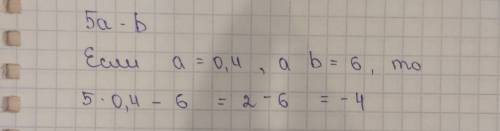 5a - b
Если a = 0,4 , а b = 6, то
5 · 0,4 - 6 = 2 - 6 = -4